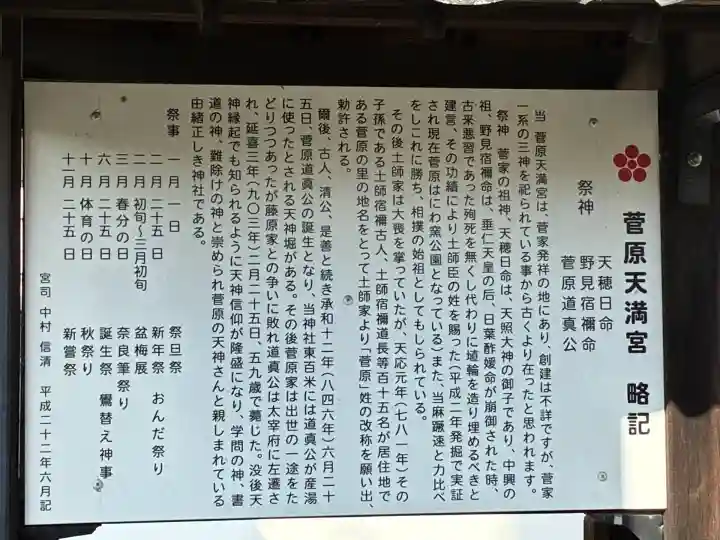 菅原天満宮 略記
祭神
天穂日命
野見宿禰命
菅原道真公
当 菅原天満宮は、菅家発祥の地にあり、創建は不詳ですが、菅家
一系の三神を祀られている事から古くより在ったと思われます。
祭神 菅家の祖神、天穂日命は、天照大神の御子であり、中興の
祖、野見宿禰命は、垂仁天皇の后、日葉酢媛命が崩御された時、
古来悪習であった殉死を無くし代わりに埴輪を造り埋めるべきと
建言、その功績により土師臣の姓を賜った(平成二年発掘で実証
され現在菅原はにわ窯公園となっている)また、当麻蹶速と力比べ
をしこれに勝ち、相撲の始祖としてもしられている。
その後土師家は大喪を掌っていたが、天応元年(七八一年)その
子孫である土師宿禰古人、土師宿禰道長等百十五名が居住地で
ある菅原の里の地名をとって土師家より「菅原」姓の改称を願い出、
勅許される。
爾後、古人、清公、是善と続き承和十二年(八四六年)六月二十
五日、菅原道真公の誕生となり、当神社東百米には道真公が産湯
に使ったとされる天神堀がある。その後菅原家は出世の一途をた
どりつつあったが藤原家との争いに敗れ道真公は太宰府に左遷さ
れ、延喜三年(九〇三年)二月二十五日、五九歳で薨じた。没後天
神縁起でも知られるように天神信仰が隆盛になり、学問の神、書
道の神、難除けの神と崇められ菅原の天神さんと親しまれている
由緒正しき神社である。
祭事 一月 一日 祭旦祭
二月 二十五日 新年祭 おんだ祭り
二月 初旬～三月初旬 盆梅展
三月 春分の日 奈良筆祭り
六月 二十五日 誕生祭 鷽替え神事
十月 体育の日 秋祭り
十一月 二十五日 新嘗祭
宮司 中村 信清 平成二十二年六月記